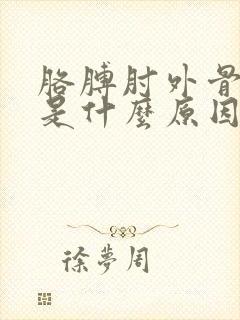 胳膊肘外骨
是什麼原因
徐夢周